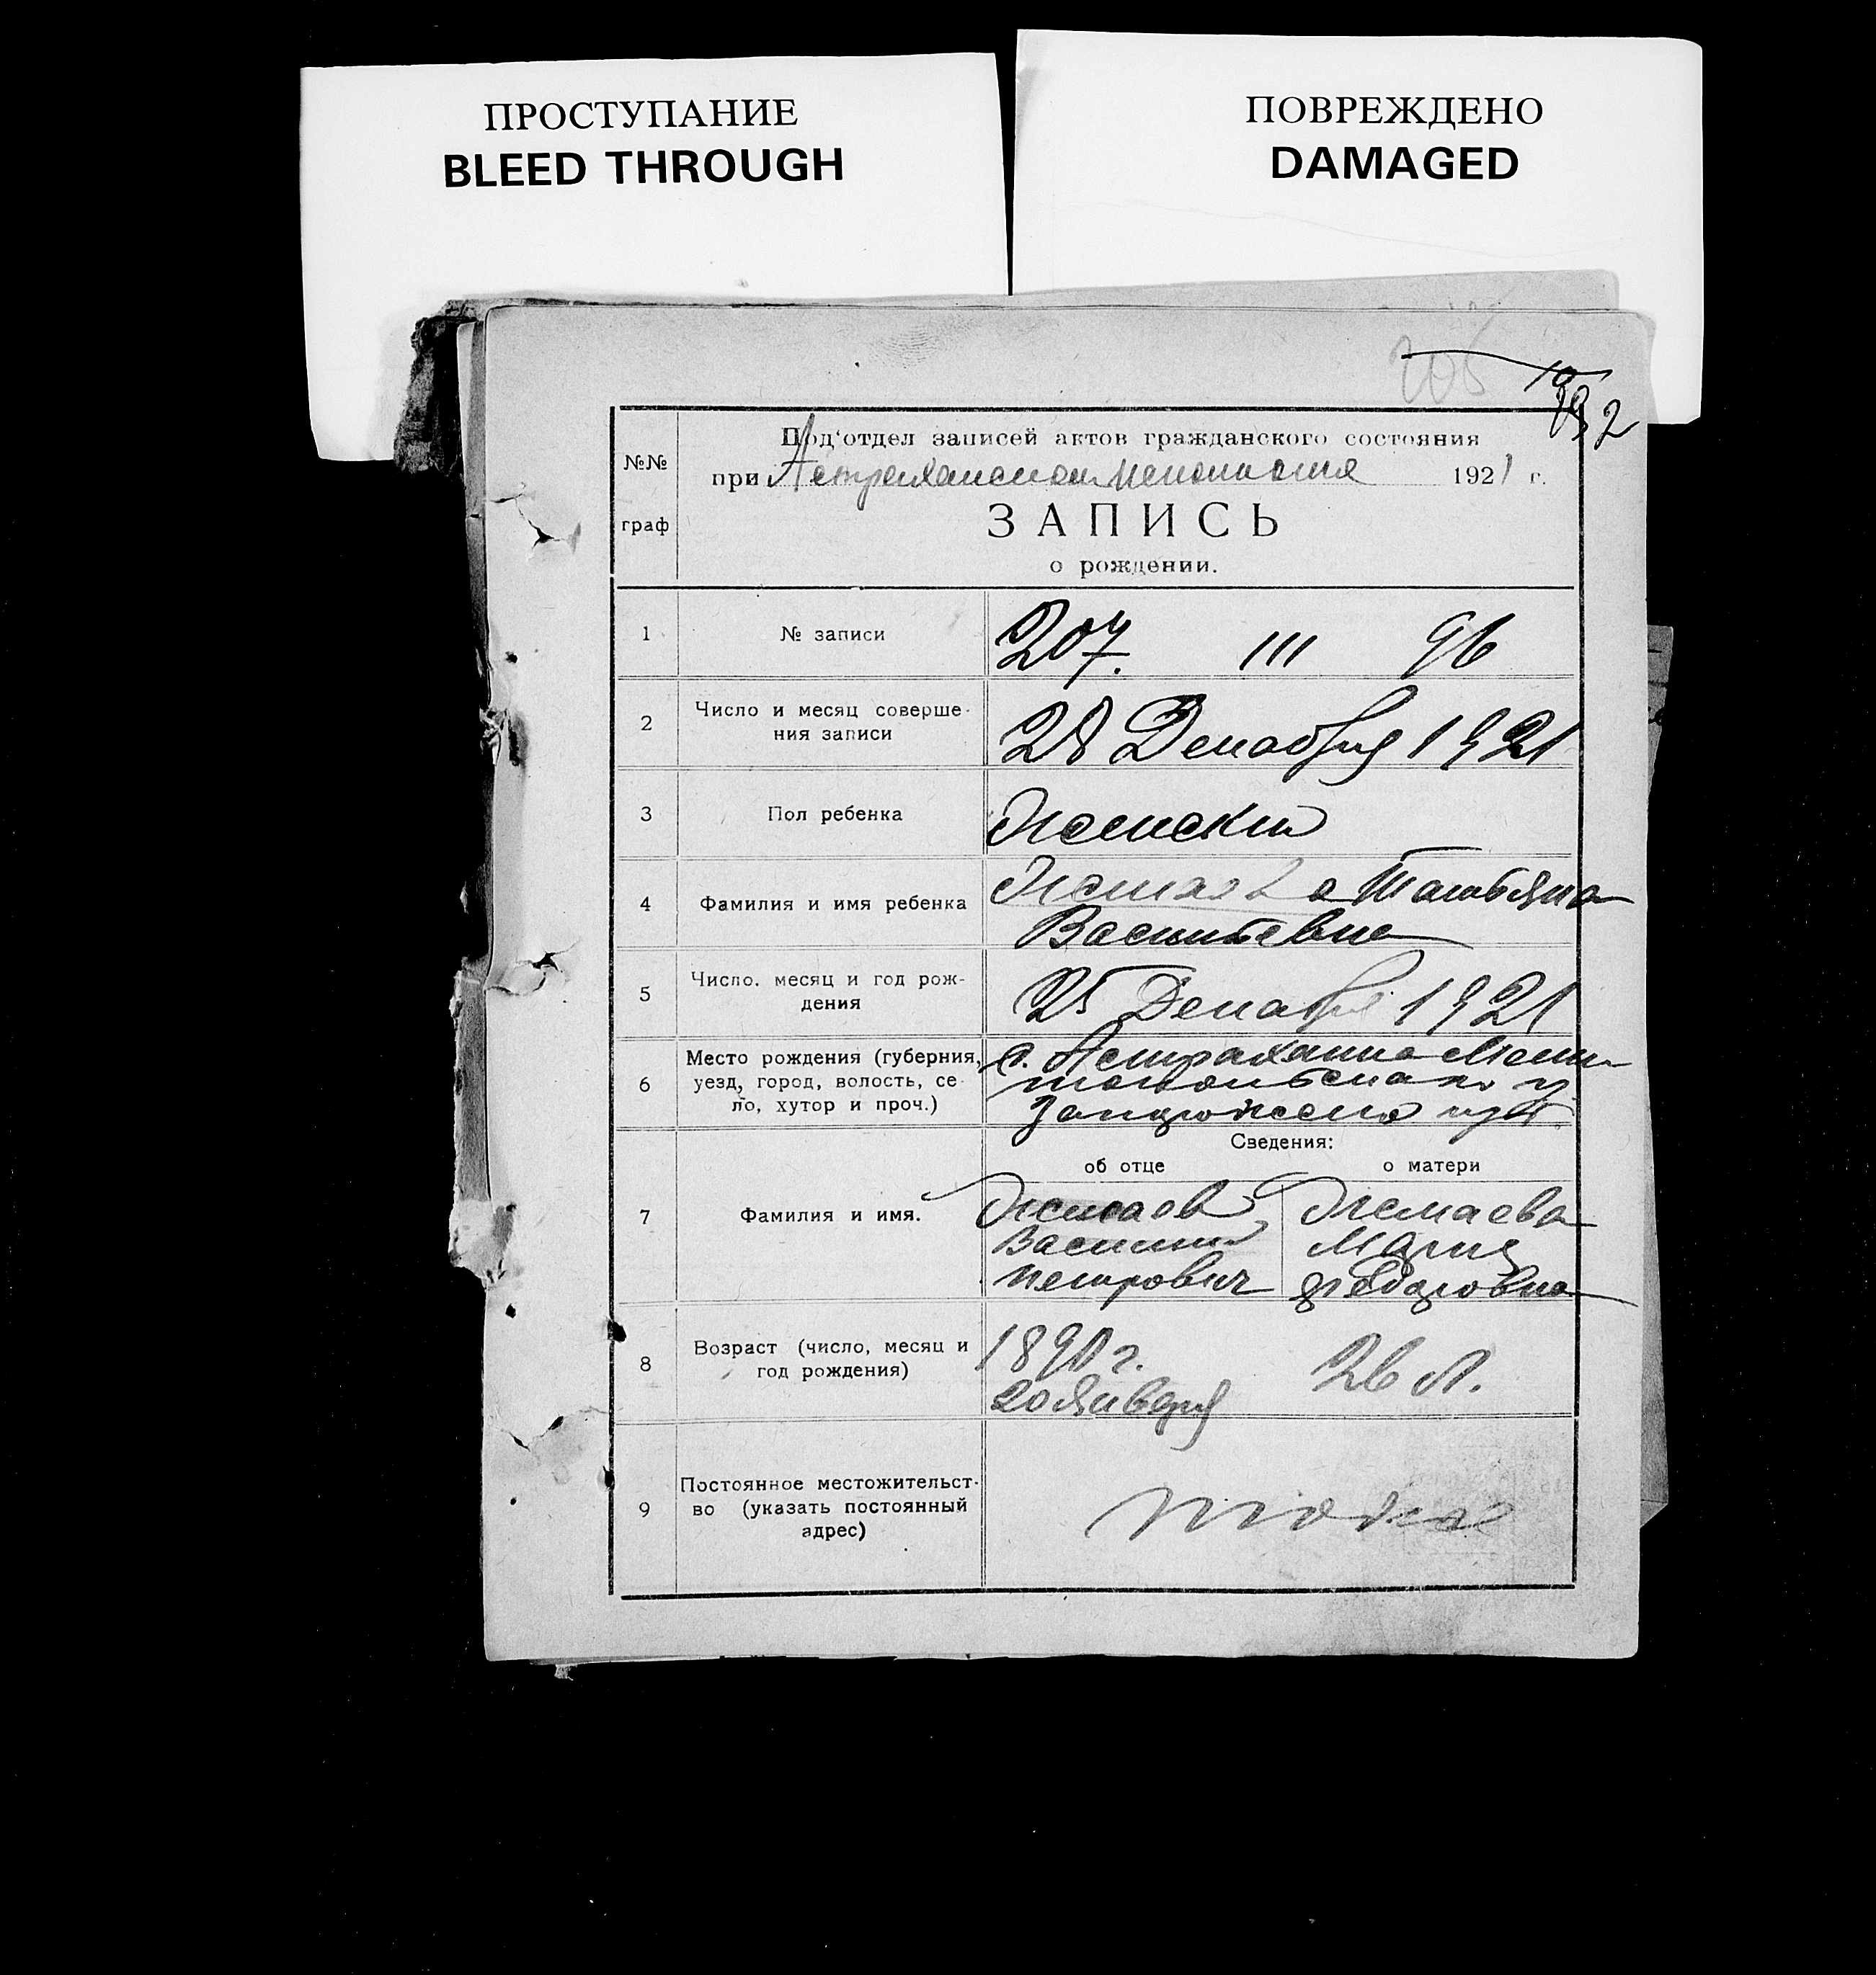 ПРОСТУПАНИЕ
BLEED THROUGH
ПОВРЕЖДЕНО
DAMAGED
206
№№
граф
Под'отдел записей актов гражданского состояния
при Астраханском 1921 г.
ЗАПИСЬ
о рождении.
1
№ записи
207. III 96
2
Число и месяц соверше-
ния записи
28 Декабря 1921
3
Пол ребенка
Женский
4
Фамилия и имя ребенка
Татьяна
Васильевна
5
Число. месяц и год рож-
дения
25 Декабря 1921
6
Место рождения (губерния,
уезд, город, волость, се-
ло, хутор и проч.)
с. Астраханка Мели-
топольскаго у
Запорожской губ.
Сведения:
об отце
о матери
7
Фамилия и имя.
Василий
Петрович
Мария
Федоровна
8
Возраст (число, месяц и
год рождения)
1890 г.
20 Января
26 л.
9
Постоянное местожительст-
во (указать постоянный
адрес)